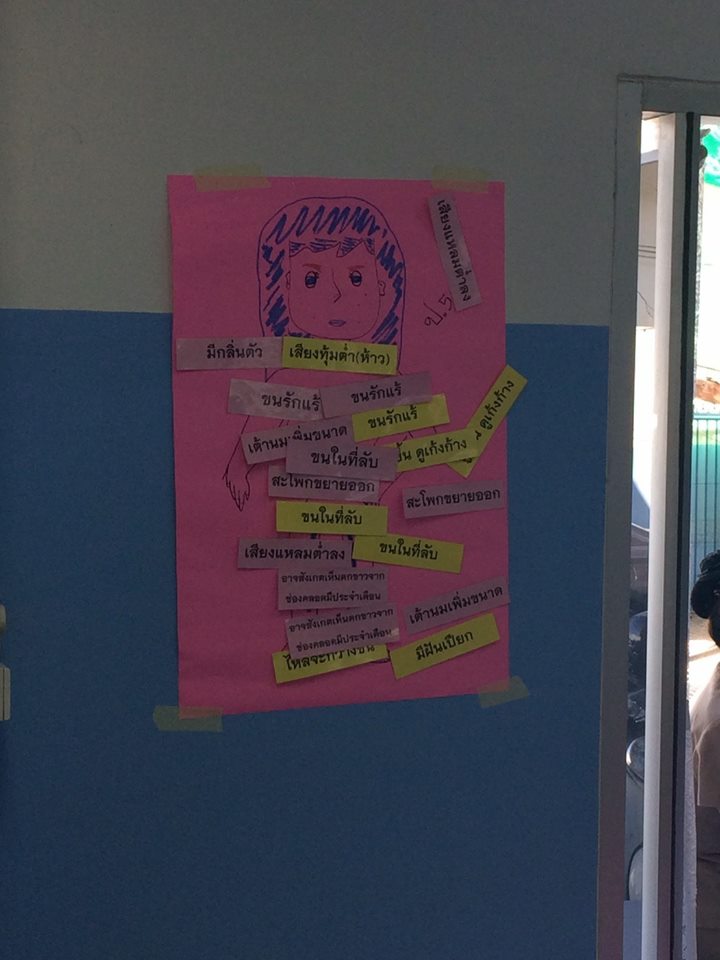 เสียงแหลมต่ำลง
ป.5
มีกลิ่นตัว
เสียงทุ้มต่ำ(ห้าว)
ขนรักแร้
ขนรักแร้
ขนรักแร้
ดูเก้งก้าง
เต้านมเพิ่มขนาด
ขนในที่ลับ
ดูเก้งก้าง
สะโพกขยายออก
สะโพกขยายออก
ขนในที่ลับ
เสียงแหลมต่ำลง
ขนในที่ลับ
อาจสังเกตเห็นตกขาวจาก
ช่องคลอดมีประจำเดือน
เต้านมเพิ่มขนาด
อาจสังเกตเห็นตกขาวจาก
ช่องคลอดมีประจำเดือน
ไหล่จะกว้างขึ้น
มีฝันเปียก